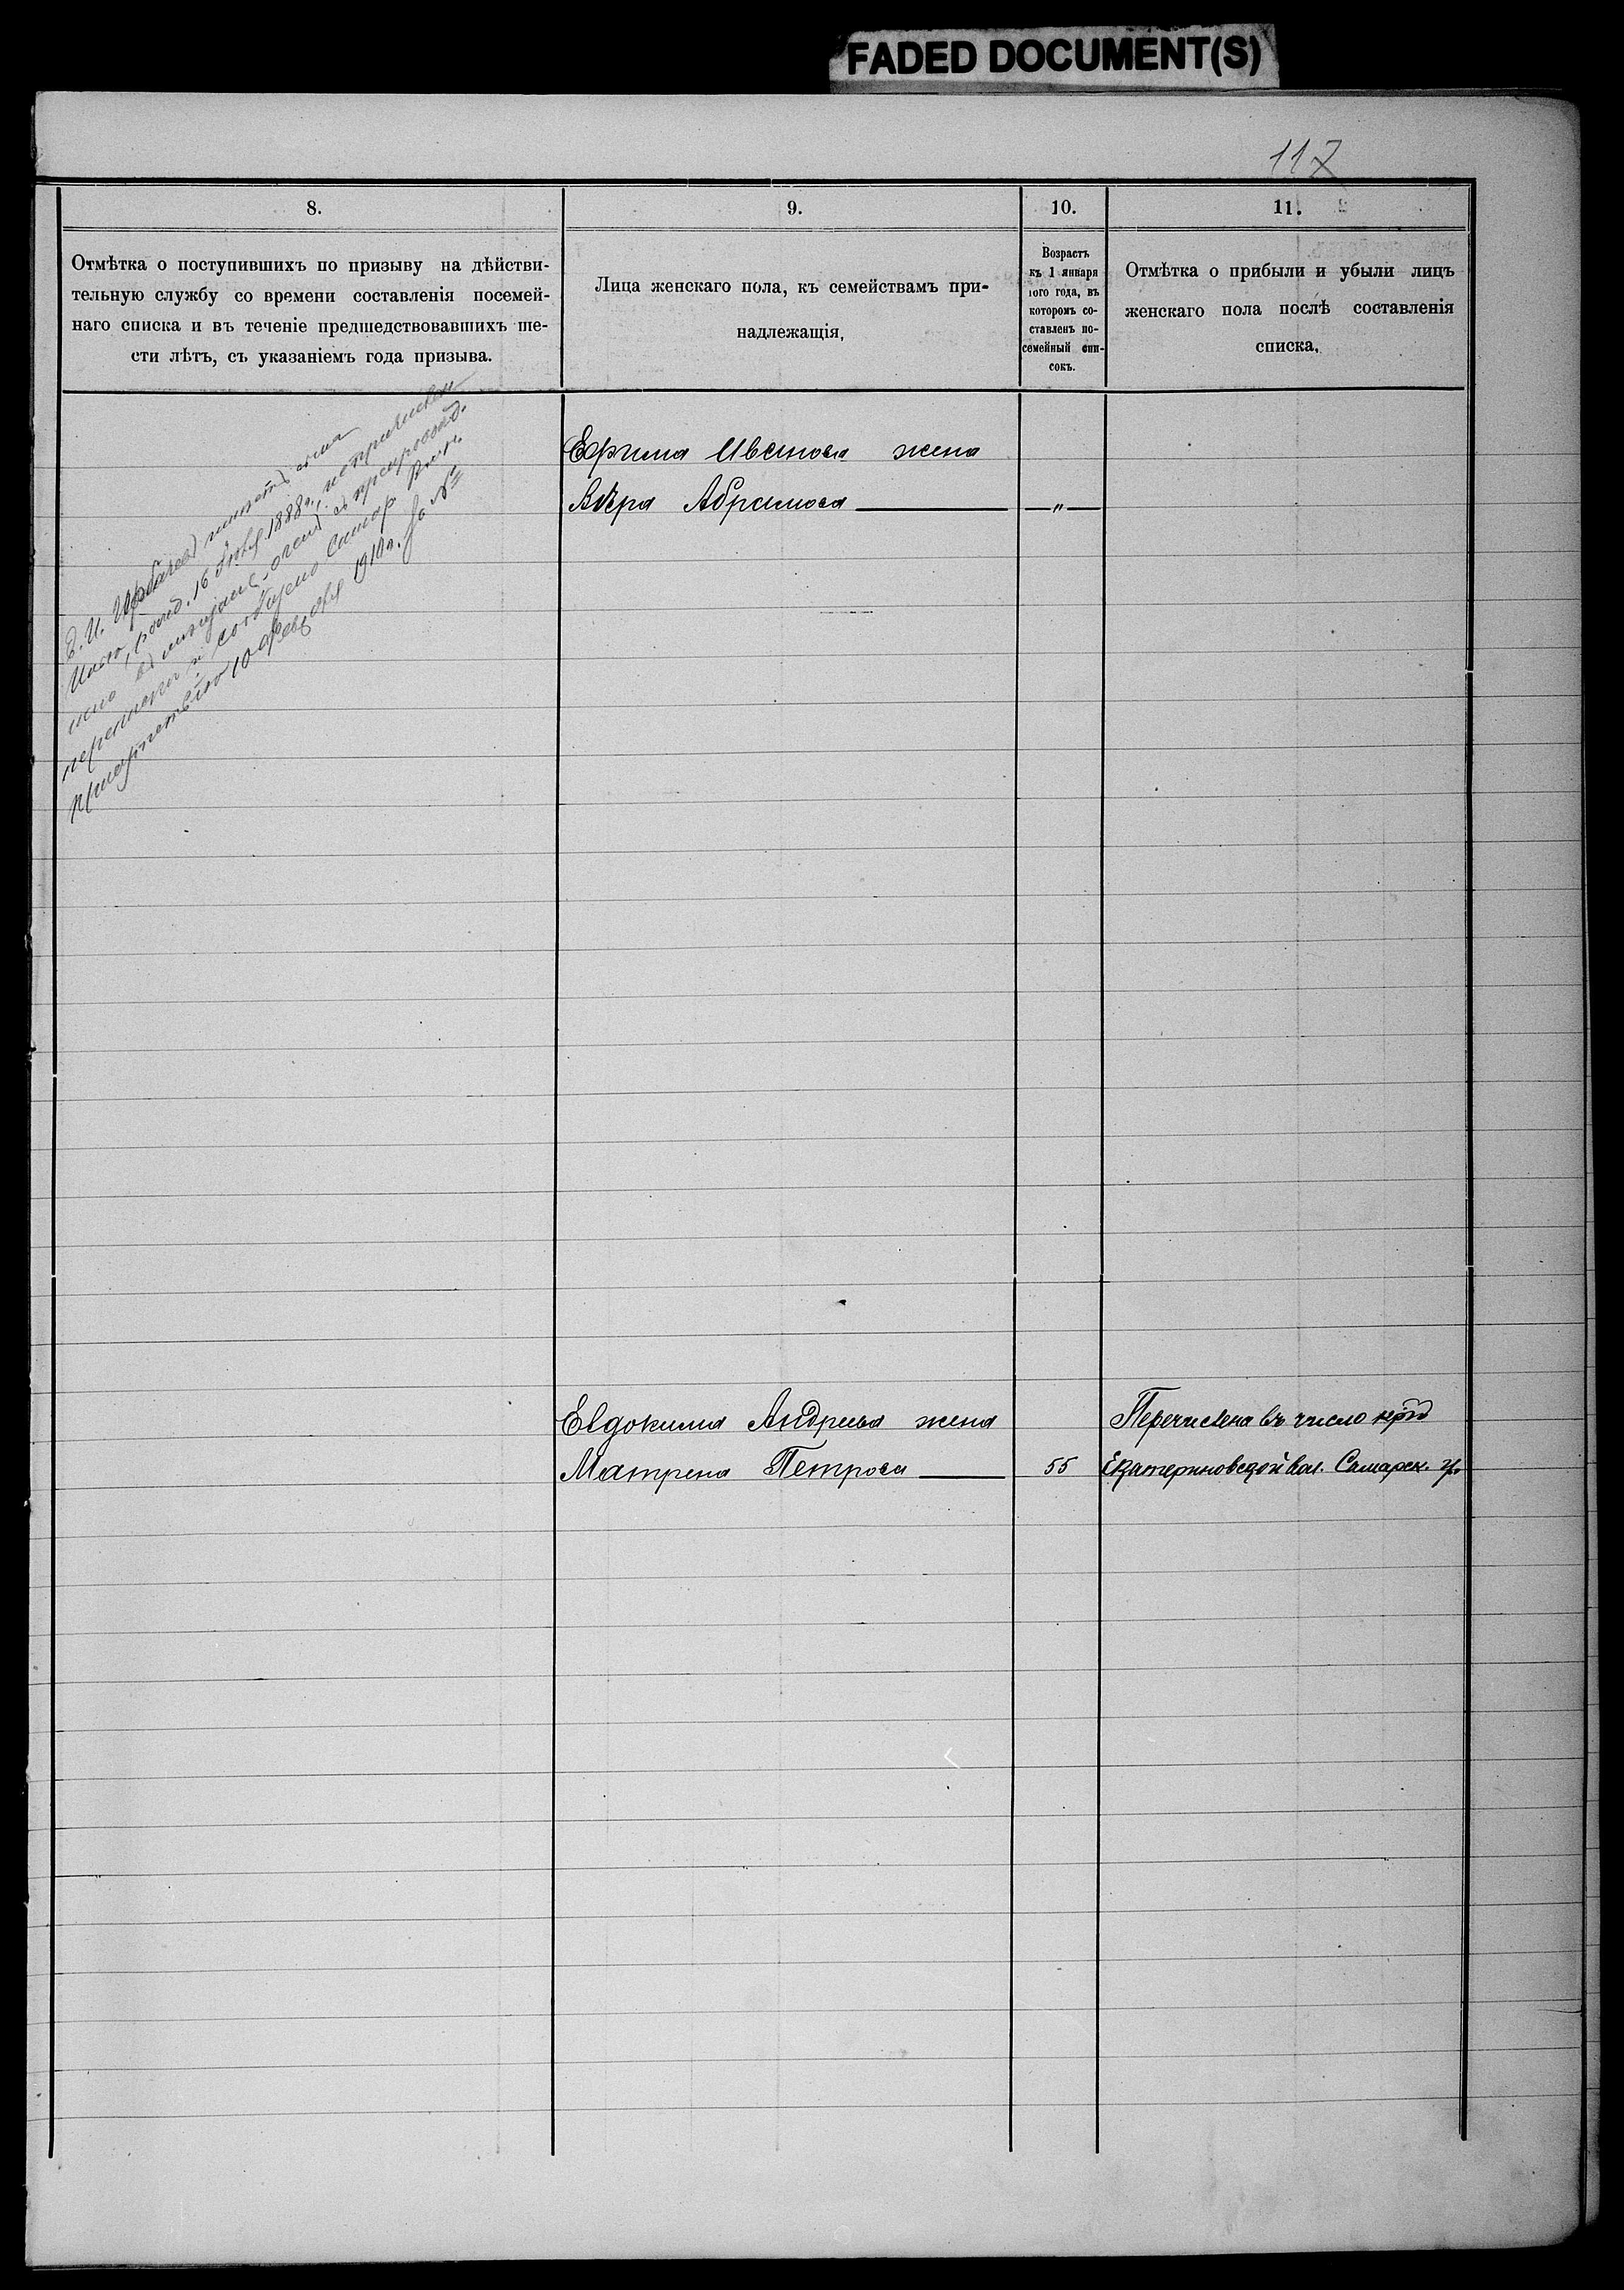 FADED DOCUMENT(S)
117
8.
Отмѣтка о поступившихъ по призыву на дѣйстви-
тельную службу со времени составленія посемей-
наго списка и въ теченіе предшедствовавшихъ ше-
сти лѣтъ, съ указаніемъ года призыва.
9.
Лица женскаго пола, къ семействамъ при-
надлежащія.
10.
Возрастъ
къ 1 января
того года, въ
которомъ со-
ставленъ по-
семейный спи-
сокъ.
11.
Отмѣтка о прибыли и убыли лицъ
женскаго пола послѣ составленія
списка.
Е. И. имѣетъ сына
рожд. 16 1888 г., не причислен
въ
переписки и сообщено Самар
10 февраля 1910 г. за №
Ефима Иванова жена
Вѣра Абрамова — „ —
Евдокима Андреева жена
Матрена Петрова — 55
Перечислена въ число
Екатериновской вол. Самарск. у.